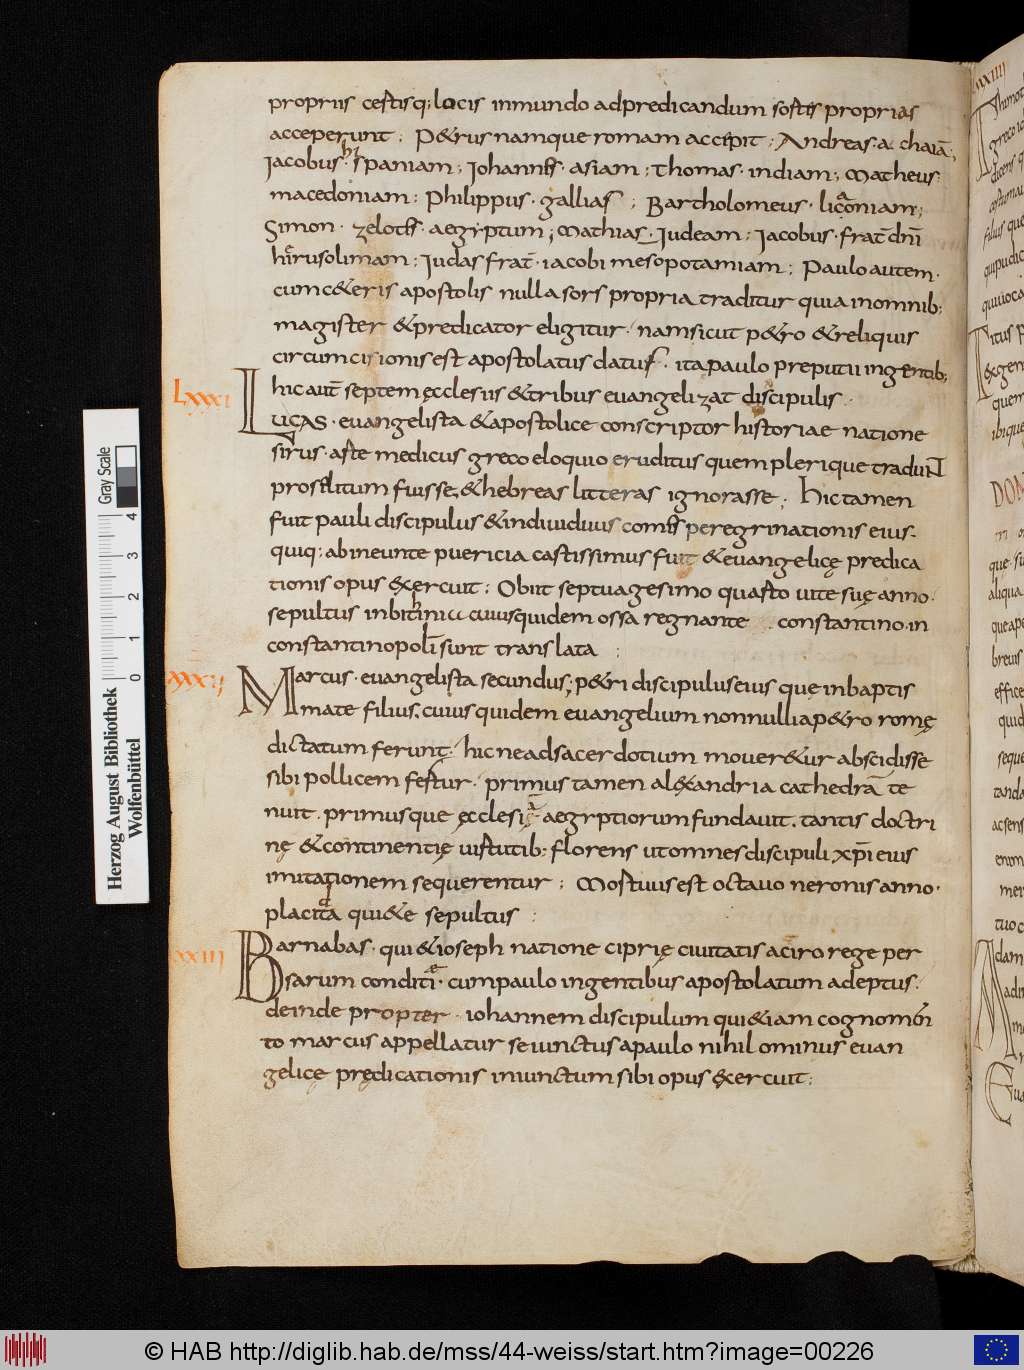 propriis certisq; locis inmundo adpredicandum sortis proprias
acceperunt; P&rus namque romam accepit; Andreas achaiā;
Iacobus spaniam; Iohannes asiam; Thomas indiam; Matheus
macedoniam; Philippus gallias; Bartholomeus licaoniam;
Simon zelotes aegyptum; Mathias Iudeam; Iacobus frat̄ dn̄i
hierusolimam; Iudas frat̄ iacobi mesopotamiam; Paulo autem
cum c&eris apostolis nulla sors propria traditur quia inomnib;
magister &predicator eligitur. nam sicut p&ro &reliquis
circumcisionis est apostolatus datus. ita paulo preputii ingentib;
LXXXI
hic aut̄ septem ęcclesiis &tribus euangelizat discipulis
Lucas. euangelista &apostolice conscriptor historiae natione
sirus. arte medicus greco eloquio eruditus quem plerique tradunt
proselitum fuisse, &hebreas litteras ignorasse; hic tamen
fuit pauli discipulus &indiuiduus comes peregrinationis eius.
quiq; abineunte puericia castissimus fuit &euangelicę predica
tionis opus exercuit; Obiit septuagesimo quarto uite suę anno.
sepultus inbithinia cuius quidem ossa regnante constantino. in
constantinopolī sunt translata;
Marcus. euangelista secundus; p&ri discipulus eius que inbaptis
mate filius. cuius quidem euangelium nonnulli ap&ro romę
dictatum ferunt. hic ne adsacerdotium mouer&ur abscidisse
sibi pollicem fertur. primus tamen alexandria cathedrā te
nuit. primusque ęcclesiā aegyptiorum fundauit. tantis doctri
nę &continentię uirtutib; florens ut omnes discipuli xp̄i eius
imitationem sequerentur; Mortuus est octauo neronis anno.
placita qui&e sepultus;
XXIII
Barnabas. qui &ioseph natione ciprię ciuitatis aciro rege per
sarum condite. cum paulo ingentibus apostolatum adeptus.
deinde propter iohannem discipulum qui&iam cognomen
to marcus appellatur seiunctus apaulo nihilominus euan
gelicę prędicationis iniunctum sibi opus exercuit;
DOM
Herzog August Bibliothek
Wolfenbüttel
Gray Scale
0 1 2 3 4
© HAB http://diglib.hab.de/mss/44-weiss/start.htm?image=00226